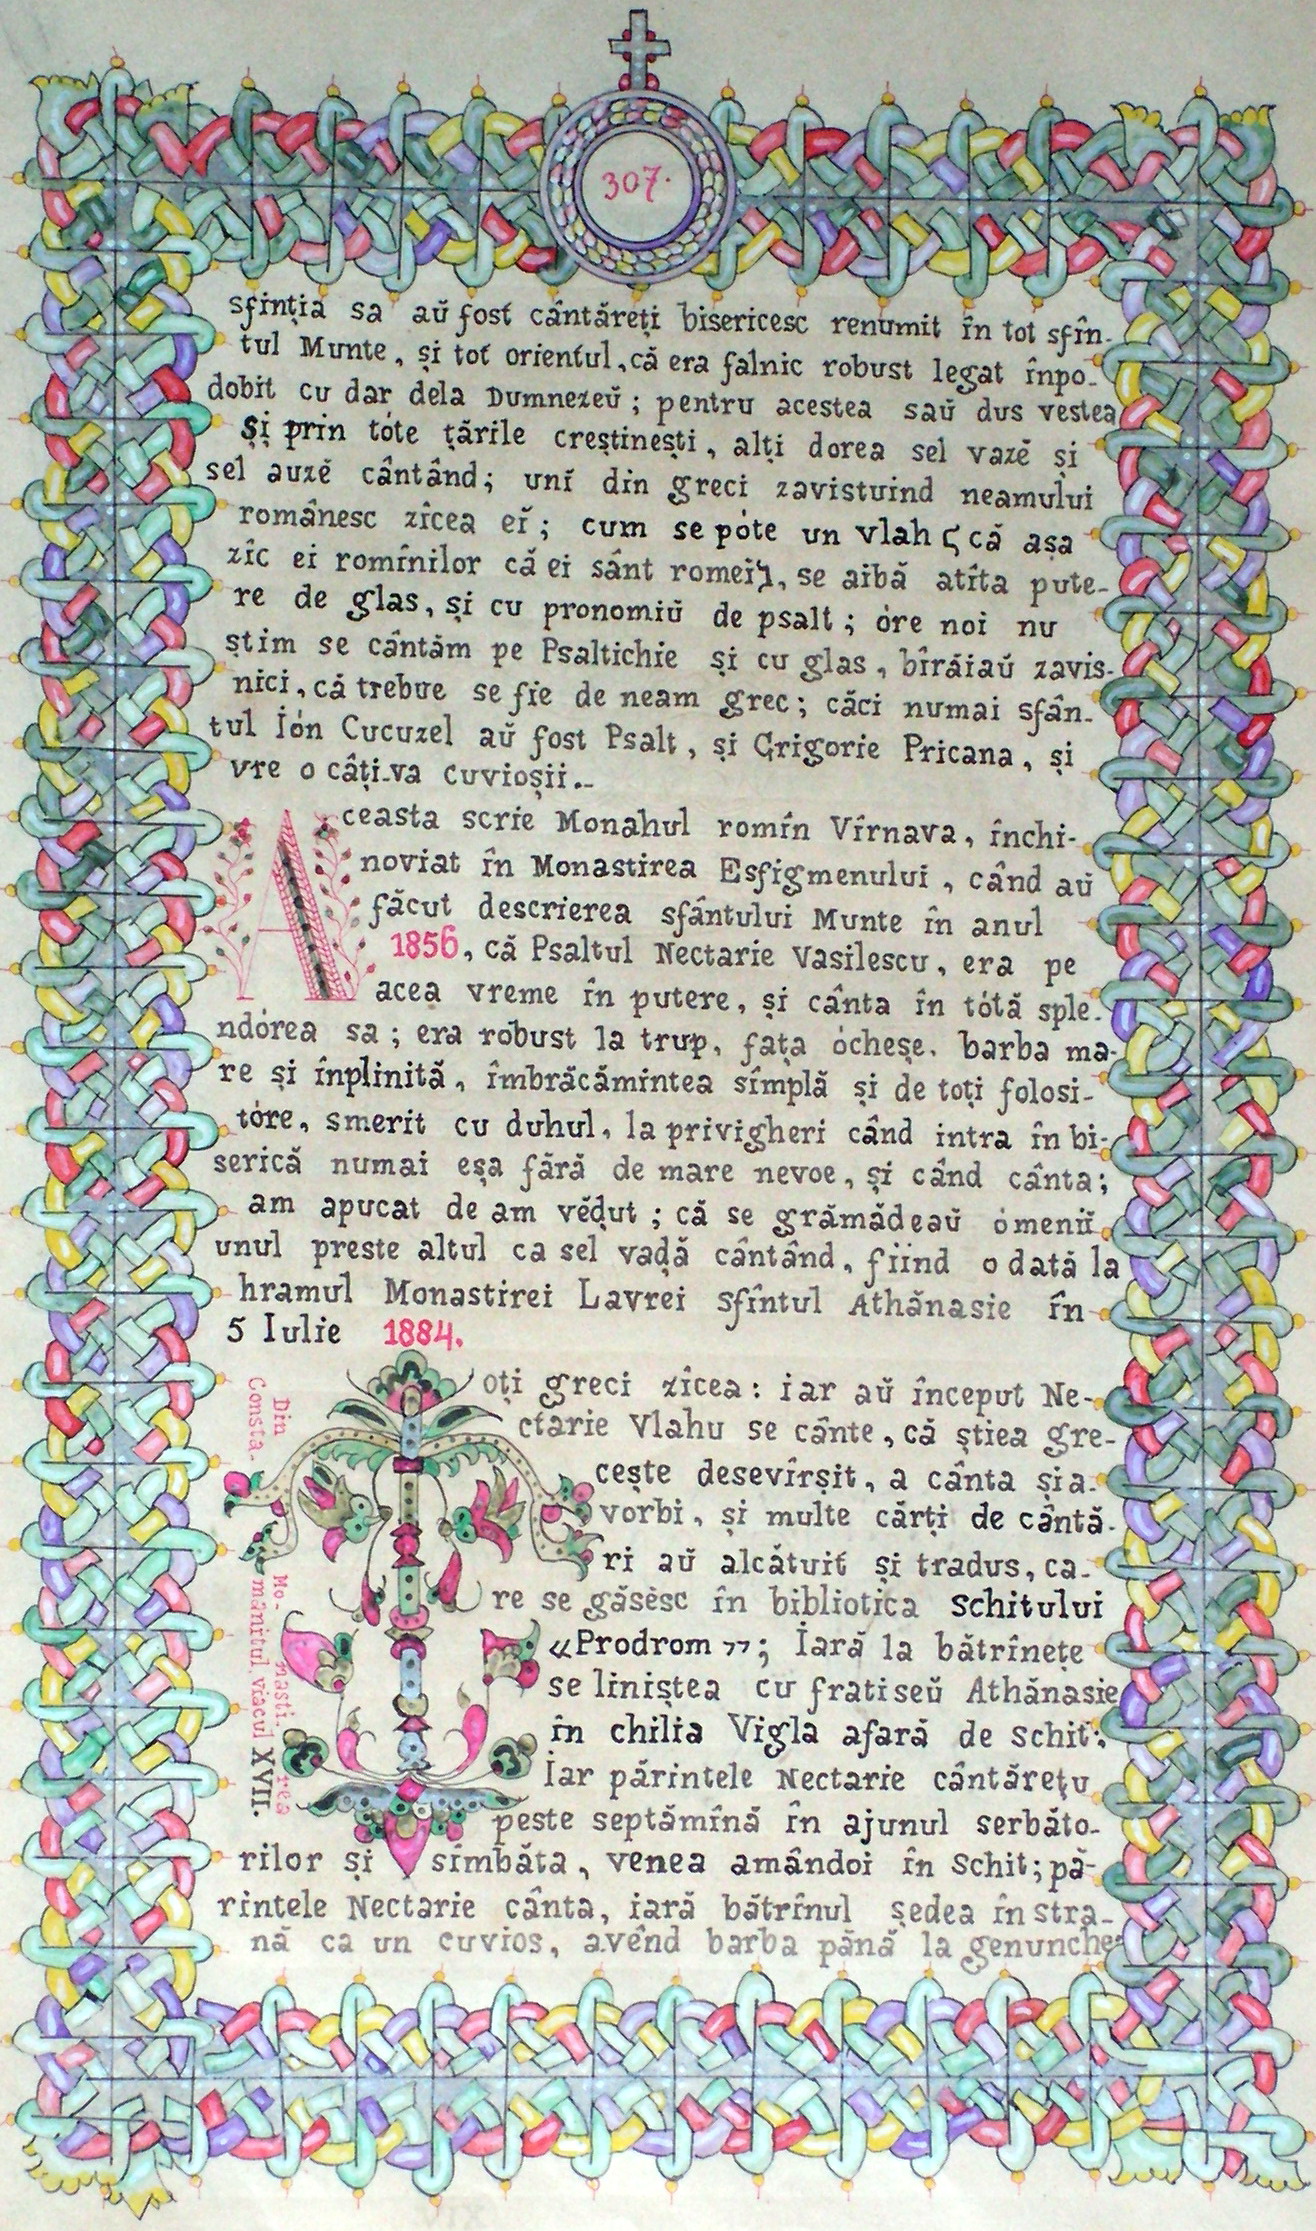 307.
sfinția sa aŭ fost cântăreți bisericesc renumit în tot sfîn-
tul Munte, și tot orientul, că era falnic robust legat înpo-
dobit cu dar dela Dumnezeŭ; pentru acestea saŭ dus vestea
Și prin tóte țările creștinești, alți dorea sel vazĕ și
sel auzĕ cântând; unĭ din greci zavistuind neamului
românesc zîcea eĭ; cum se póte un vlah (că așa
zîc ei romînilor că ei sânt romei), se aibă atîta pute-
re de glas, și cu pronomiŭ de psalt; óre noi nu
știm se cântăm pe Psaltichie și cu glas, bîrăiaŭ zavis-
nici, că trebue se fie de neam grec; căci numai sfân-
tul Ión Cucuzel aŭ fost Psalt, și Grigorie Pricana, și
vre o câți-va cuvioșii.-
Aceasta scrie Monahul romîn Vîrnava, închi-
noviat în Monastirea Esfigmenului, când aŭ
făcut descrierea sfântului Munte în anul
1856, că Psaltul Nectarie Vasilescu, era pe
acea vreme în putere, și cânta în tótă sple-
ndórea sa; era robust la trup, fața ócheșe, barba ma-
re și înplinită, îmbrăcămintea sîmplă și de toți folosi-
tóre, smerit cu duhul, la privigheri când intra în bi-
serică numai eșa fără de mare nevoe, și când cânta;
am apucat de am vĕḑut; că se grămădeaŭ ómeniĭ
unul preste altul ca sel vaḑă cântând, fiind odată la
hramul Monastirei Lavrei sfîntul Athănasie în
5 Iulie 1884.
Toți greci zîcea: iar aŭ început Ne-
ctarie Vlahu se cânte, că știea gre-
cește desevîrșit, a cânta și a
vorbi, și multe cărți de cântă-
ri aŭ alcătuit și tradus, ca-
re se găsèsc în bibliotica Schitului
«Prodrom»; Iară la bătrînețe
se liniștea cu fratiseŭ Athănasie
în chilia Vigla afară de schit;
Iar părintele Nectarie cântărețu
peste septămînă în ajunul serbăto-
rilor și sîmbăta, venea amândoi în Schit; pă-
rintele Nectarie cânta, iară bătrînul ședea în stra-
nă ca un cuvios, avênd barba până la genunche
Din Mo-nasti-rea
Consta-manitul, viacul XVII.